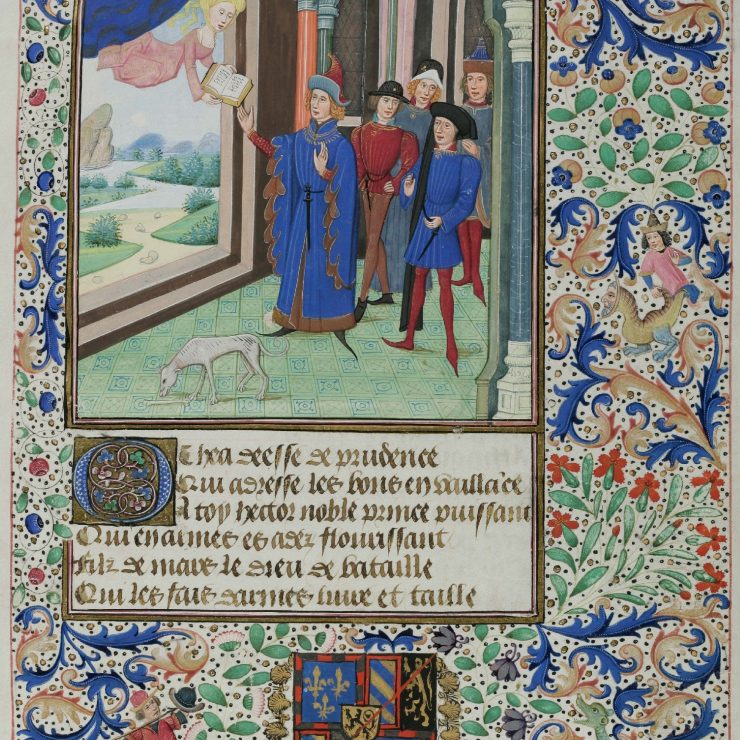 Othea deesse de prudence
Qui adresse les bons en vaillãce
A toy hector noble prince puissant
Qui en armes es adez flourissant
filz de mars le dieu de bataille
Qui les fais darmes liure et taille